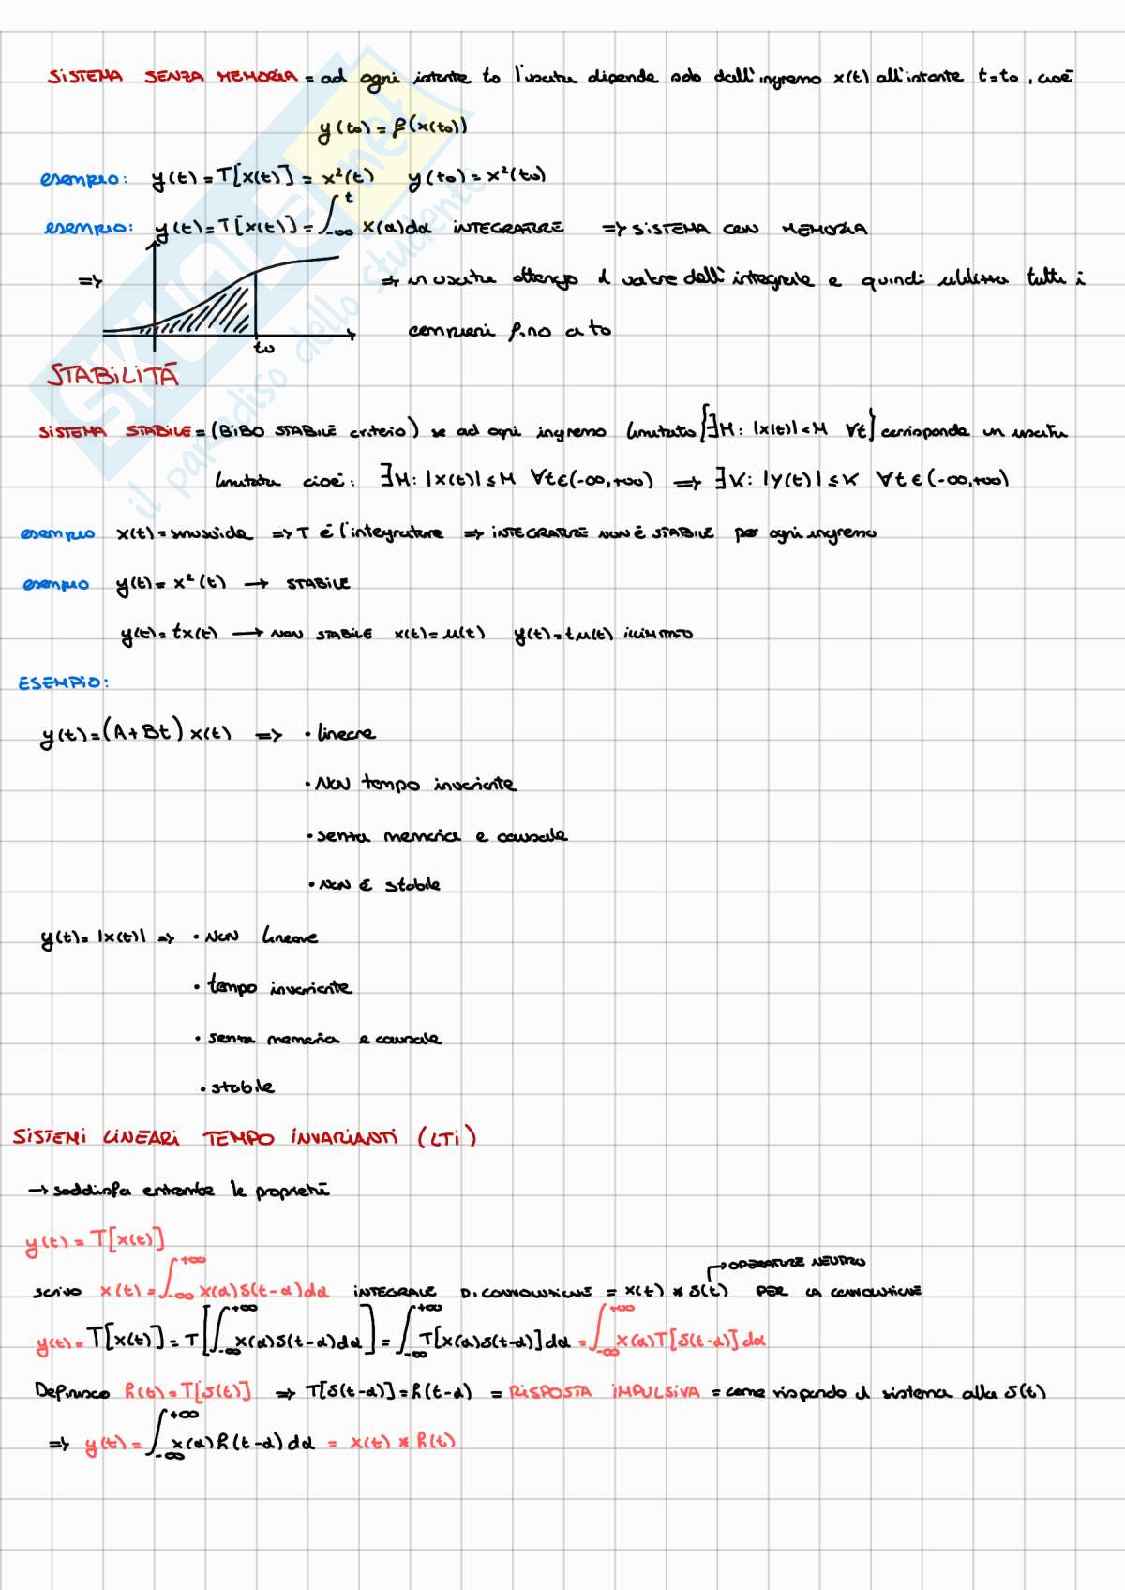 SISTEMA SENZA MEMORIA = ad ogni istante to l'uscita dipende solo dall'ingresso x(t) all'istante t=to, cioè
y(to) = f(x(to))
esempio: y(t) = T[x(t)] = x²(t) y(to) = x²(to)
esempio: y(t) = T[x(t)] = ∫_{-∞}^{t} x(α)dα INTEGRATORE => SISTEMA CON MEMORIA
=> to => in uscita ottengo il valore dell'integrale e quindi utilizza tutti i
campioni fino a to
STABILITÀ
SISTEMA STABILE = (BIBO STABILE criterio) se ad ogni ingresso limitato [∃M: |x(t)|<M ∀t] corrisponde un uscita
limitata cioè: ∃M: |x(t)| ≤ M ∀t∈(-∞,+∞) => ∃K: |y(t)| ≤ K ∀t∈(-∞,+∞)
esempio x(t) = sinusoide => T è l'integratore => INTEGRATORE NON È STABILE per ogni ingresso
esempio y(t) = x²(t) → STABILE
y(t) = tx(t) → NON STABILE x(t) = u(t) y(t) = tu(t) illimitato
ESEMPIO:
y(t) = (A+Bt)x(t) => • lineare
• NON tempo invariante
• senza memoria e causale
• NON è stabile
y(t) = |x(t)| => • NON lineare
• tempo invariante
• senza memoria e causale
• stabile
SISTEMI LINEARI TEMPO INVARIANTI (LTI)
→ soddisfa entrambe le proprietà
y(t) = T[x(t)]
OPERATORE NEUTRO
scrivo x(t) = ∫_{-∞}^{+∞} x(α)δ(t-α)dα INTEGRALE DI CONVOLUZIONE = x(t) * δ(t) PER LA CONVOLUZIONE
y(t) = T[x(t)] = T[∫_{-∞}^{+∞} x(α)δ(t-α)dα] = ∫_{-∞}^{+∞} T[x(α)δ(t-α)]dα = ∫_{-∞}^{+∞} x(α)T[δ(t-α)]dα
Definisco h(t) = T[δ(t)] => T[δ(t-α)] = h(t-α) = RISPOSTA IMPULSIVA = come risponde il sistema alla δ(t)
=> y(t) = ∫_{-∞}^{+∞} x(α)h(t-α)dα = x(t) * h(t)
SKUOLA.net
il paradiso dello studente